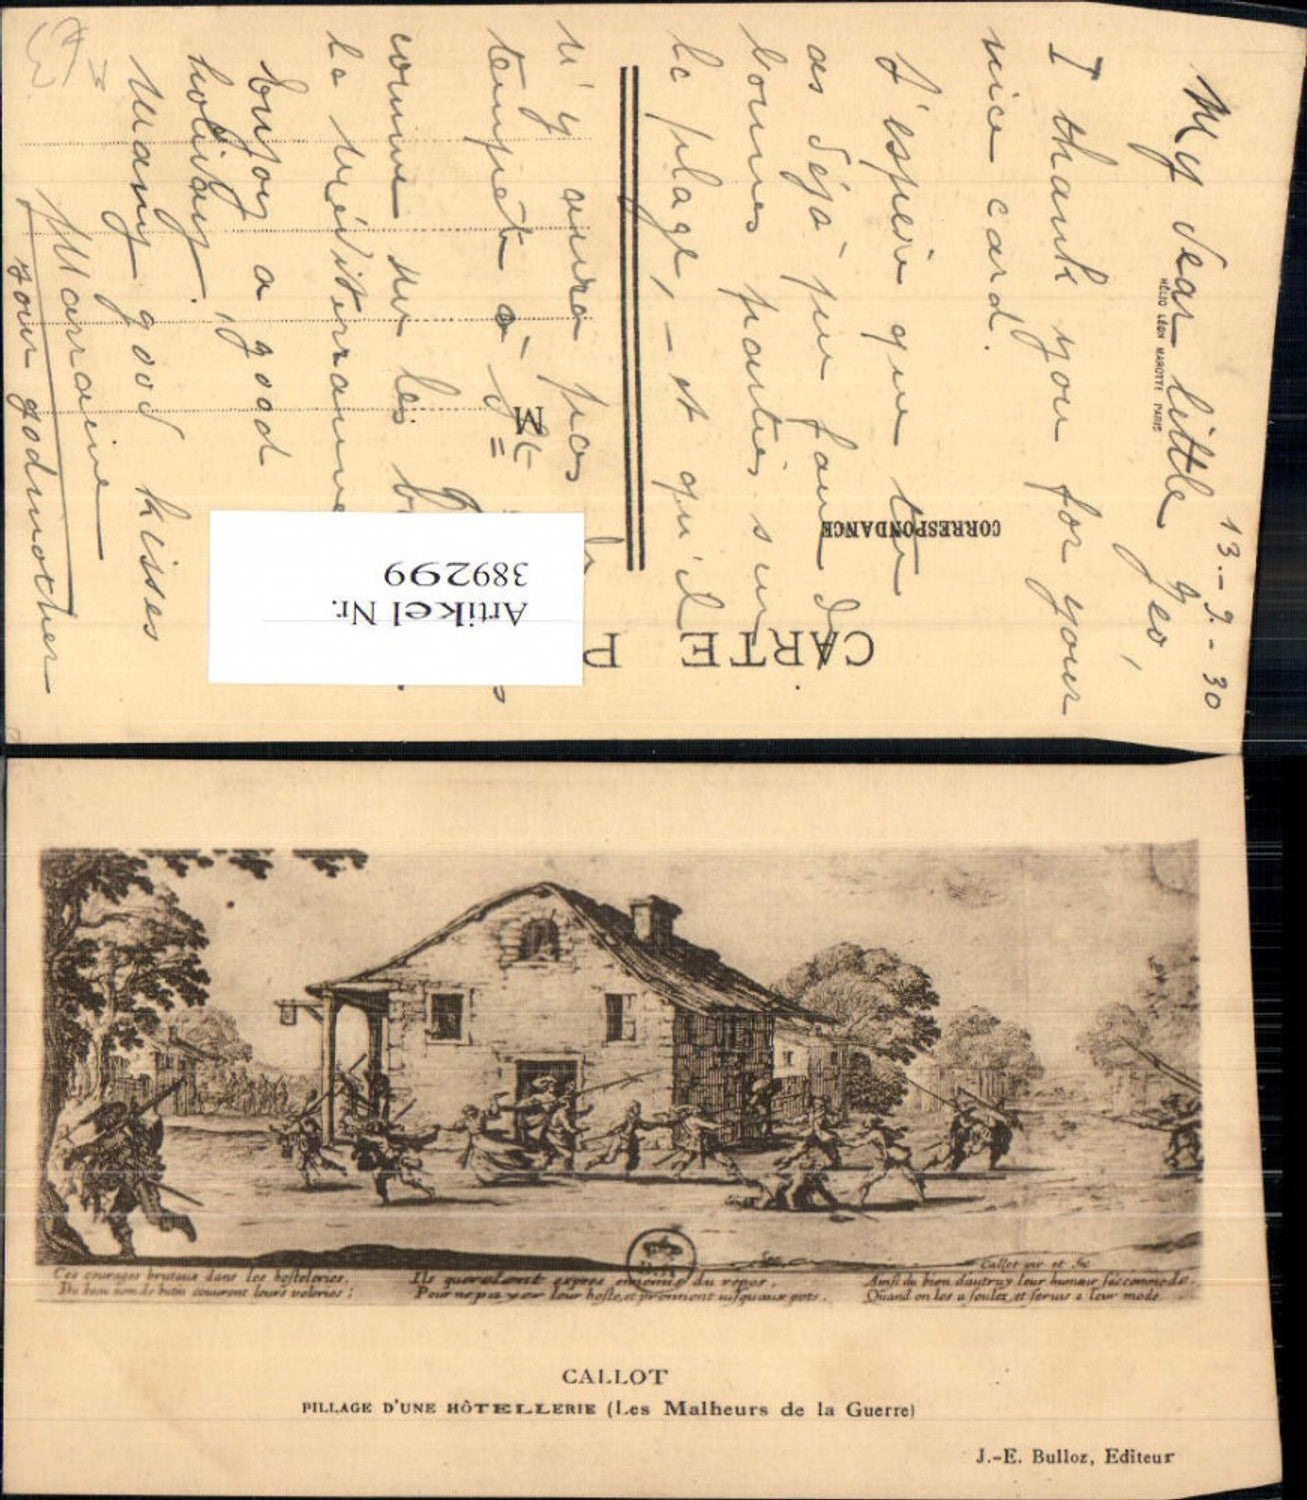 13.-9.-30
My dear little Geo,
I thank you for your
nice card.
J'espère que tu
as déjà pu faire de
bonnes parties sur
la plage, - et qu'il
n'y aura pas
tempête à St=
comme sur les
la Méditerranée
Enjoy a good
holiday!
Many good kisses
Marraine
your godmother
HÉLIO LÉON MAROTTE PARIS
CORRESPONDANCE
CARTE P
M
Artikel Nr.
389299
Ces courages brutaux dans les hostelleries,
Du beau nom de butin couvrent leurs voleries;
Ils querellent expres ennemis du repos,
Pour ne payer leur hoste, et prennent iusqu'aux pots.
Callot inv. et fec.
Ainsi du bien d'autruy leur humeur s'accommode
Quand on les a soulez, et seruis a leur mode
CALLOT
PILLAGE D'UNE HÔTELLERIE (Les Malheurs de la Guerre)
J.-E. Bulloz, Editeur